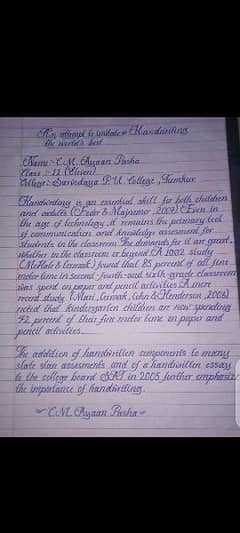 An attempt to imitate Handwriting
the world's best
Name :- C.M. Ayaan Pasha
Class :- 11 (Eleven)
College : Sarvodaya P.U. College , Tumkur
Handwriting is an essential skill for both children
and adults (Feder & Majnemer, 2007) Even in
the age of technology, it remains the primary tool
of communication and knowledge assesment for
students in the classroom. The demands for it are great,
whether in the classroom or beyond. A 1992 study
(McHale & Cermak) found that 85 percent of all fine
motor time in second-fourth-and sixth-grade classrooms
was spent on paper and pencil activities. A more
recent study (Marr, Cermak, Cohn & Henderson, 2003)
noted that kindergarten children are now spending
42 percent of their fine motor time on paper and
pencil activities.
The addition of handwritten components to many
state stan assesments, and of a handwritten essay
to the college board SAT in 2005 further emphasize
the importance of handwriting.
C.M. Ayaan Pasha